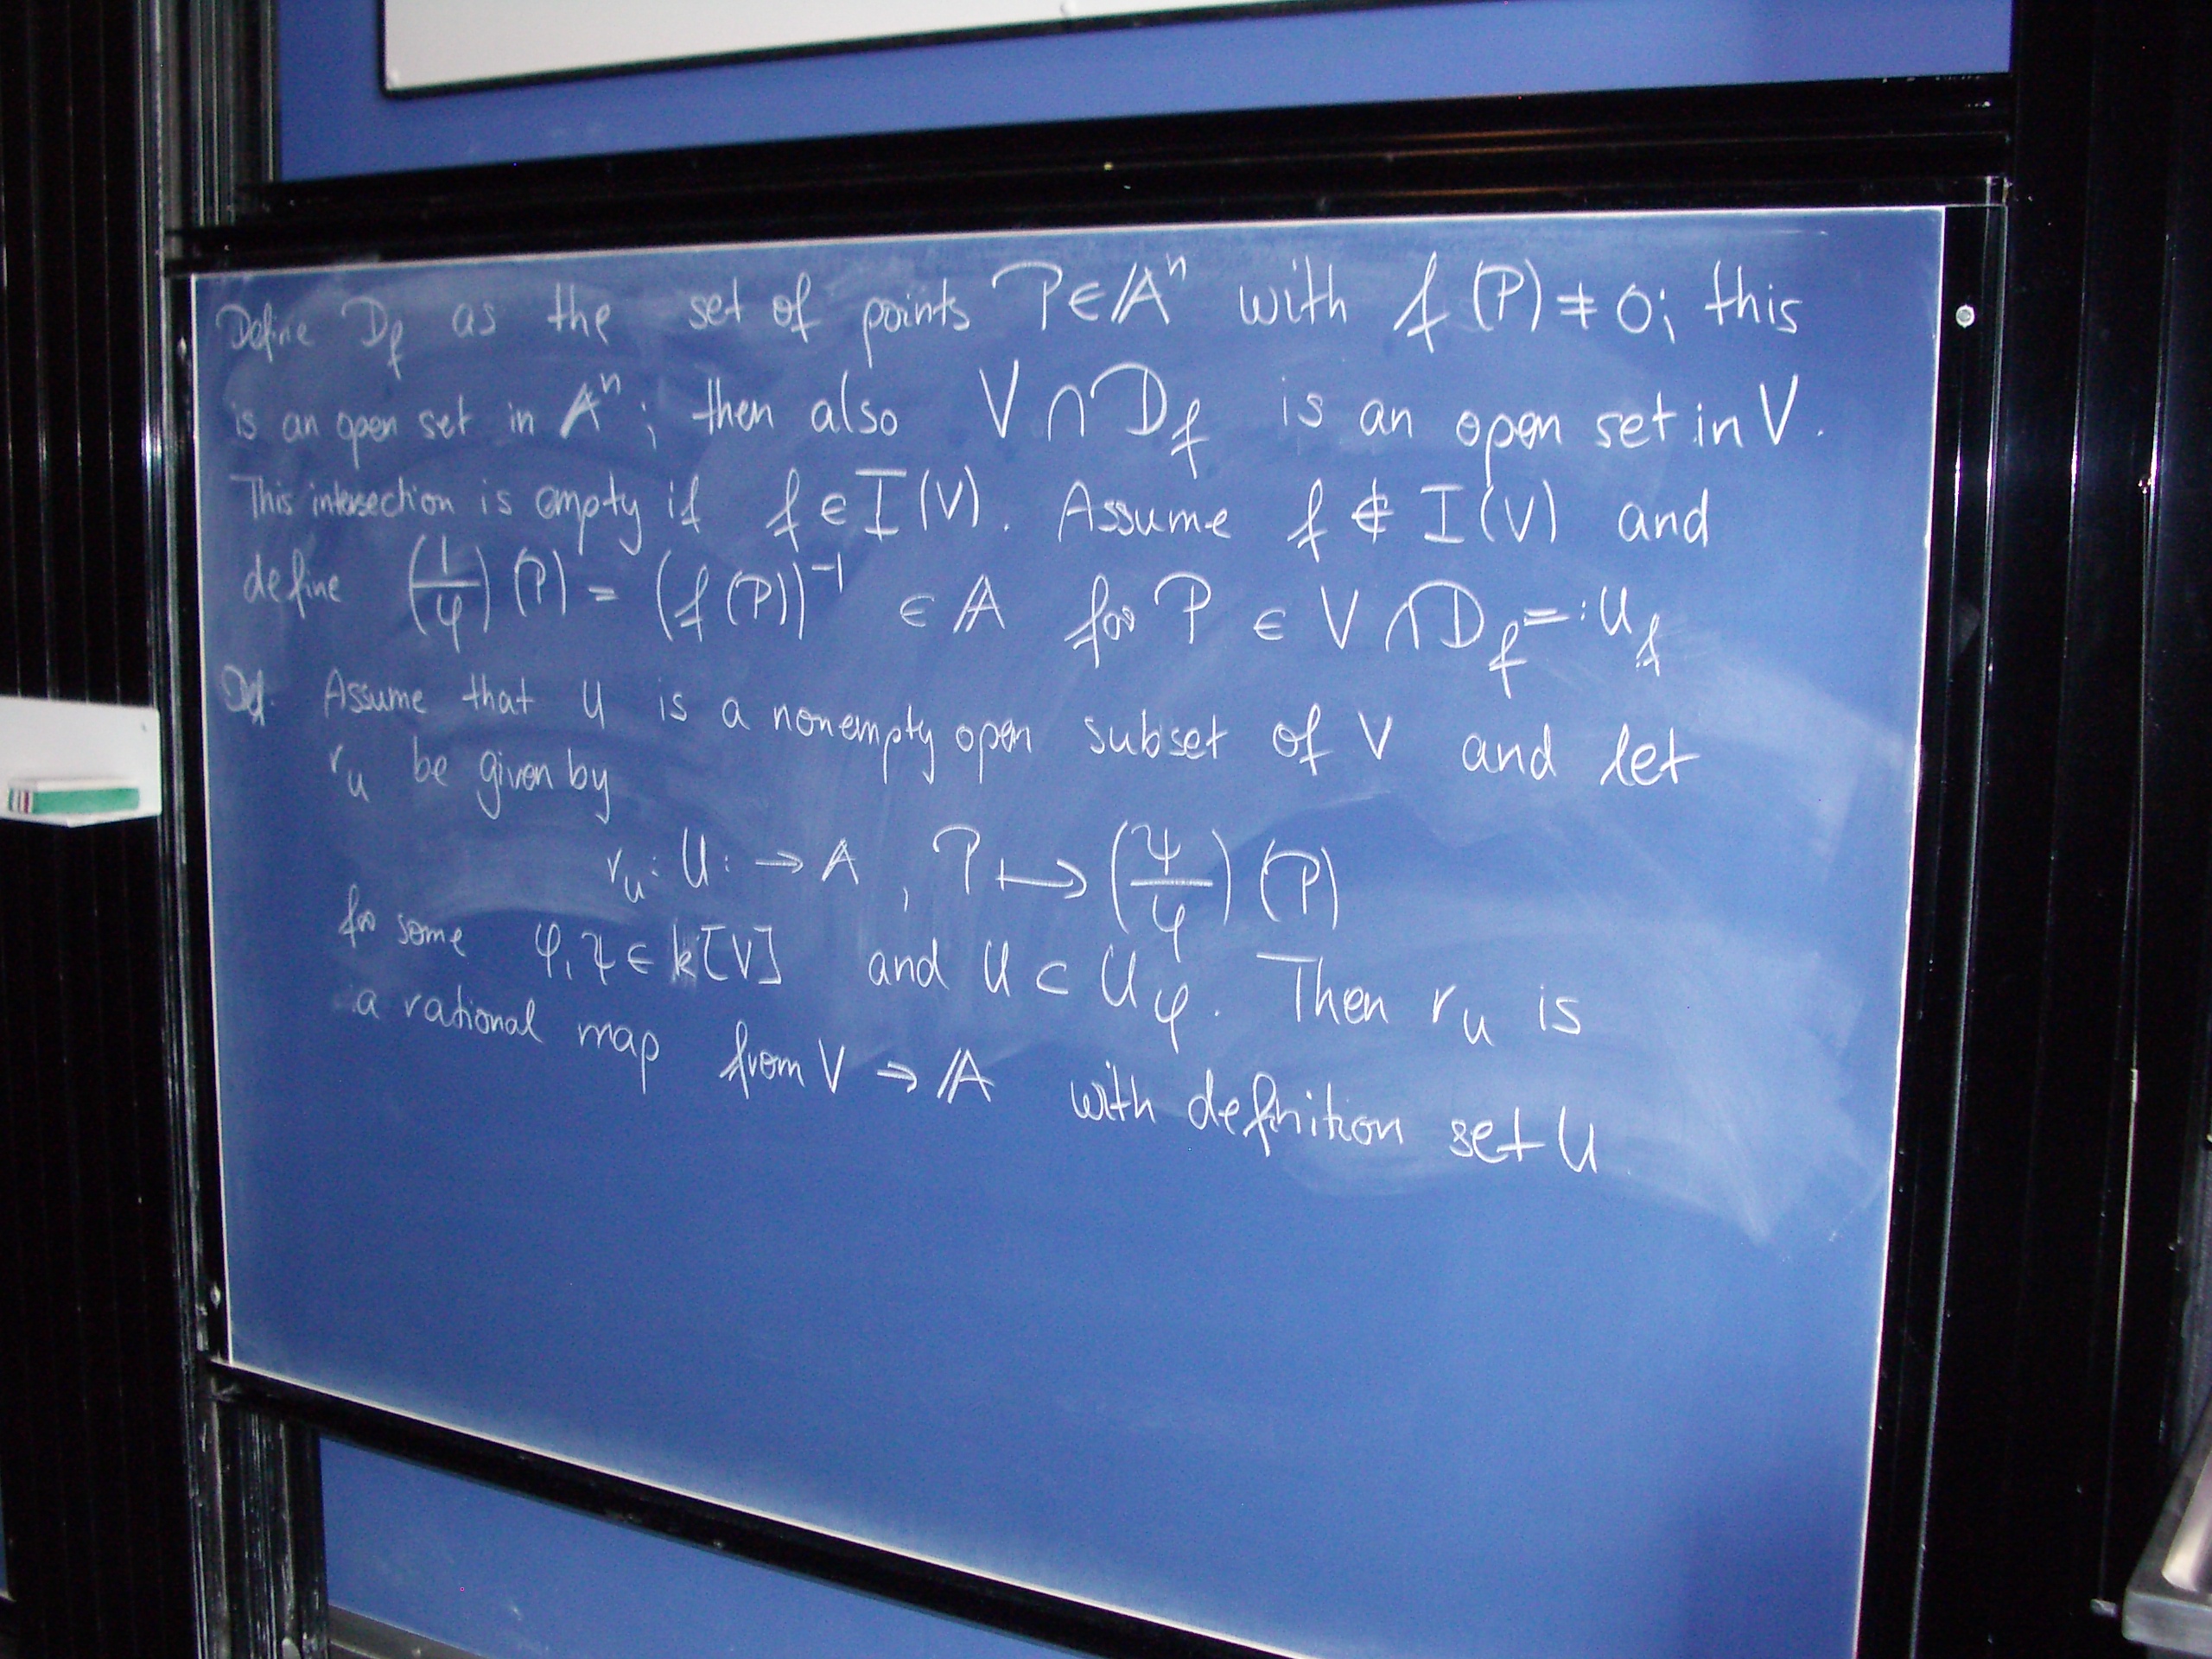 Define D_f as the set of points P ∈ 𝔸ⁿ with f(P) ≠ 0; this
is an open set in 𝔸ⁿ; then also V ∩ D_f is an open set in V.
This intersection is empty if f ∈ I(V). Assume f ∉ I(V) and
define (1/φ)(P) = (f(P))⁻¹ ∈ 𝔸 for P ∈ V ∩ D_f =: U_f
Def. Assume that U is a nonempty open subset of V and let
r_U be given by
r_U: U: → 𝔸, P ↦ (ψ/φ)(P)
for some φ, ψ ∈ k[V] and U ⊂ U_φ. Then r_U is
a rational map from V → 𝔸 with definition set U.